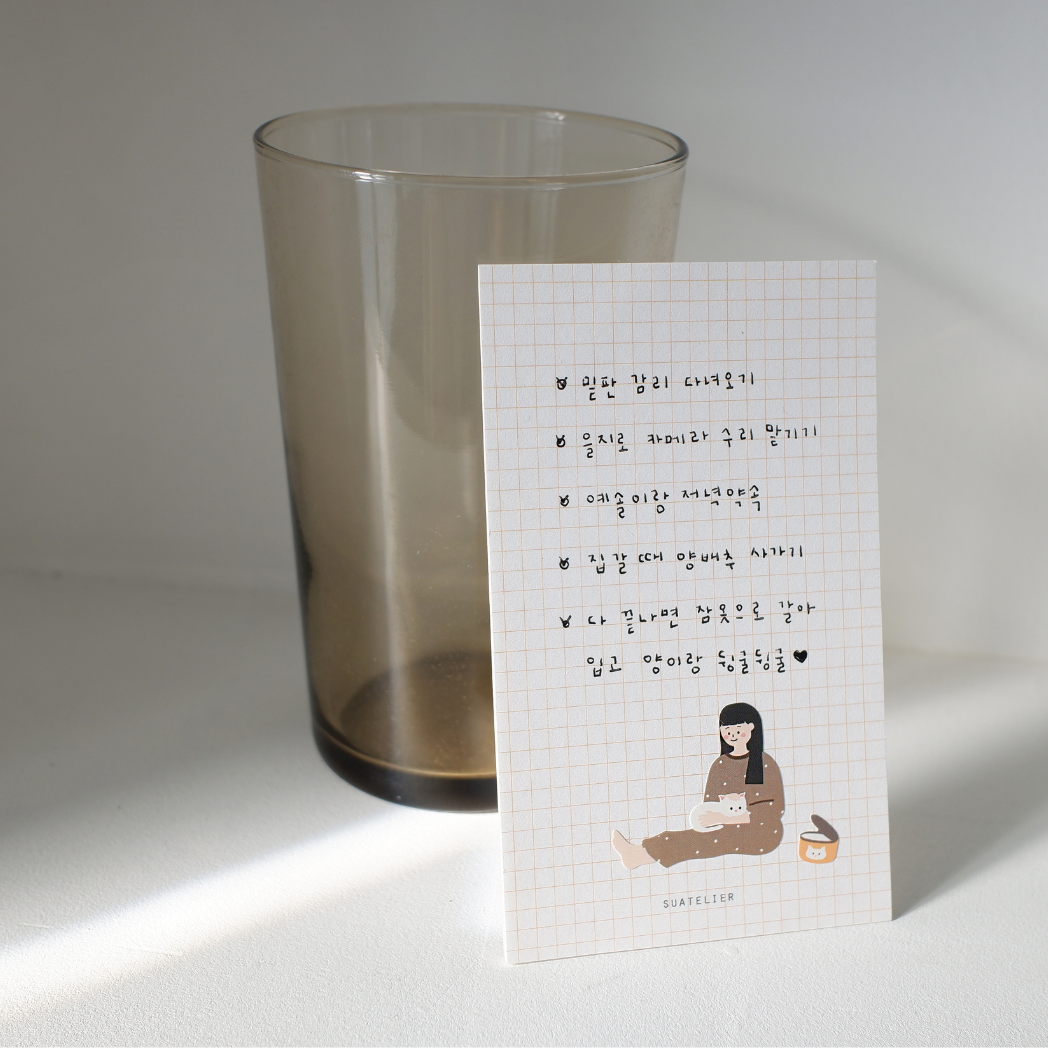 밑판 감리 다녀오기
을지로 카메라 수리 맡기기
예솔이랑 저녁약속
집갈 때 양배추 사가기
다 끝나면 잠옷으로 갈아
입고 양이랑 뒹굴뒹굴♥
SUATELIER